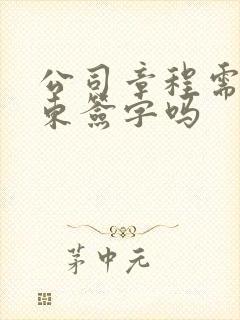 公司章程需
东签字吗
茅中元